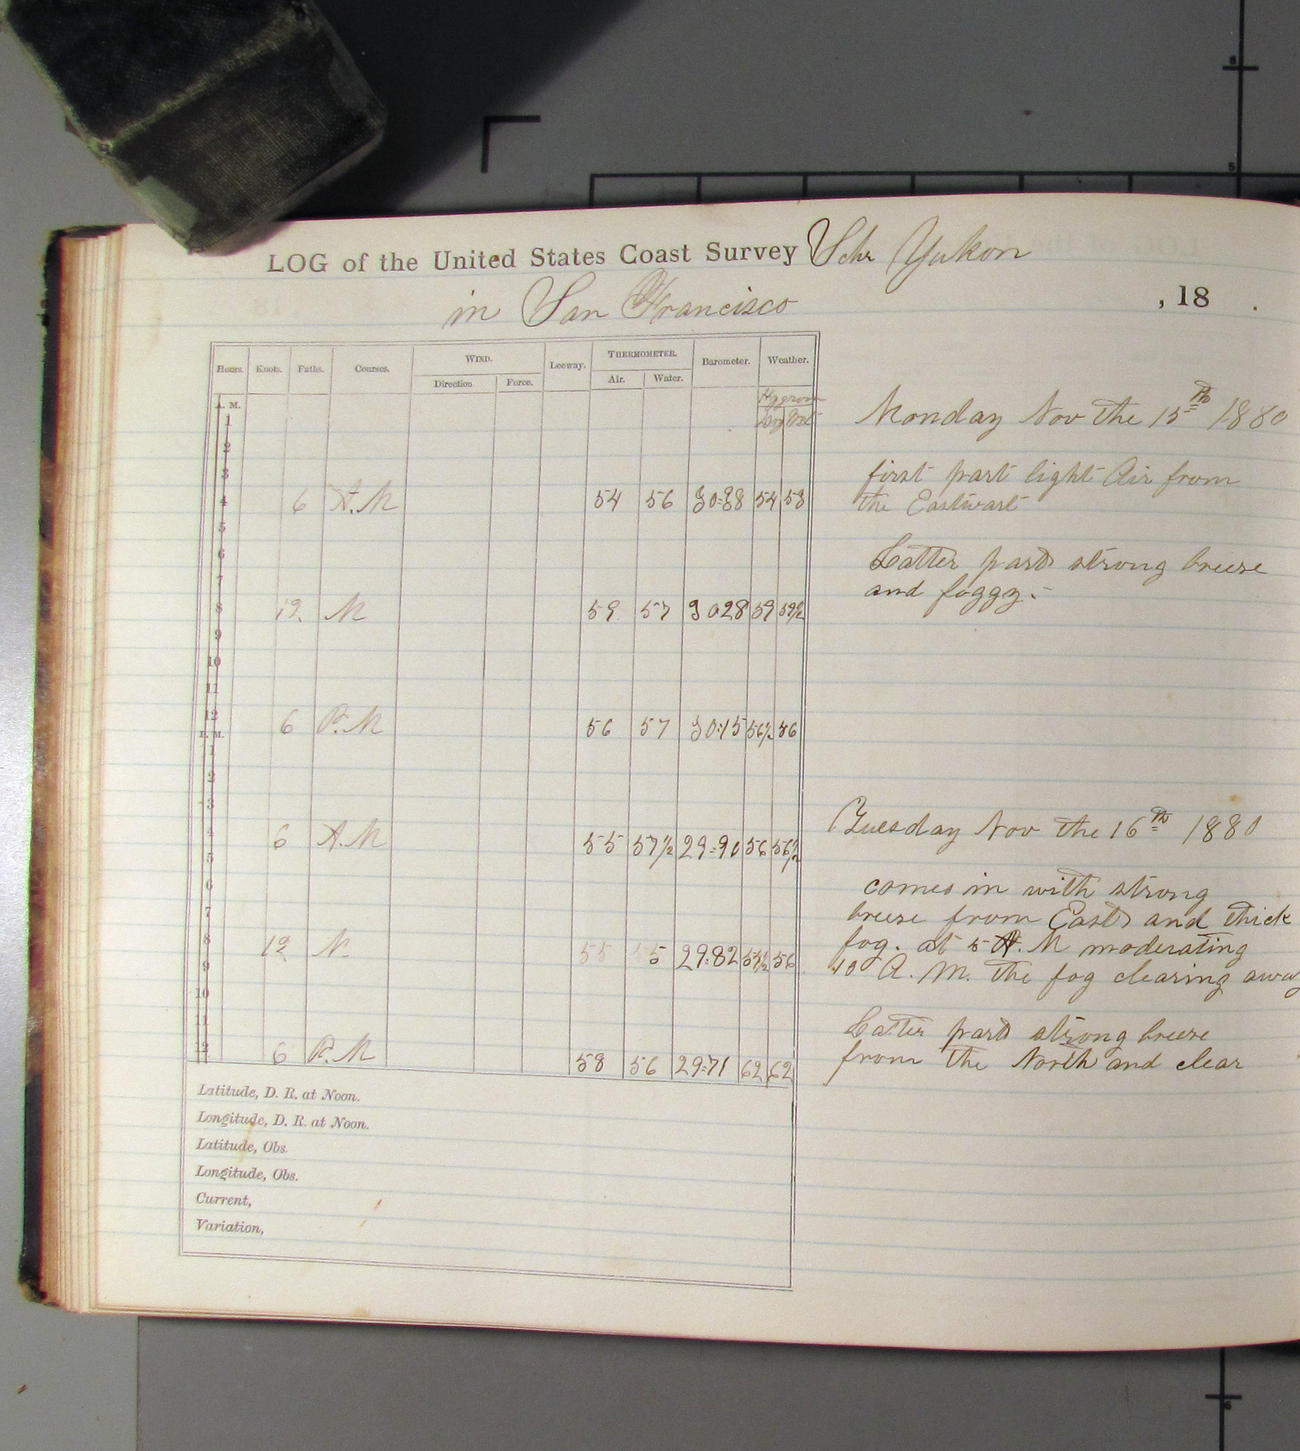 LOG of the United States Coast Survey Schr Yukon
in San Francisco , 18 .
Hours. Knots. Faths. Courses. WIND. Leeway. THERMOMETER. Barometer. Weather.
Direction Force. Air. Water.
A. M.
1
2
3
4 6 A.M 54 56 54 53
5
6
7
8 12 M 59 57 3028 59 59½
9
10
11
12 6 P.M 56 57 30.15 56½ 56
P. M.
1
2
3
4 6 A.M 55 57½ 29=90 56 56½
5
6
7
8 12 M. 55 55 29.82 55½ 56
9
10
11
12 6 P.M 58 56 29=71 62 62
Latitude, D. R. at Noon.
Longitude, D. R. at Noon.
Latitude, Obs.
Longitude, Obs.
Current,
Variation,
Monday Nov the 15th 1880
first part light Air from
the Eastwart
Latter part strong breese
and foggy.-
Tuesday Nov the 16th 1880
comes in with strong
breese from East and thick
fog. at 5 A. M moderating
10 A. M. the fog clearing away
Latter part strong breese
from the North and clear